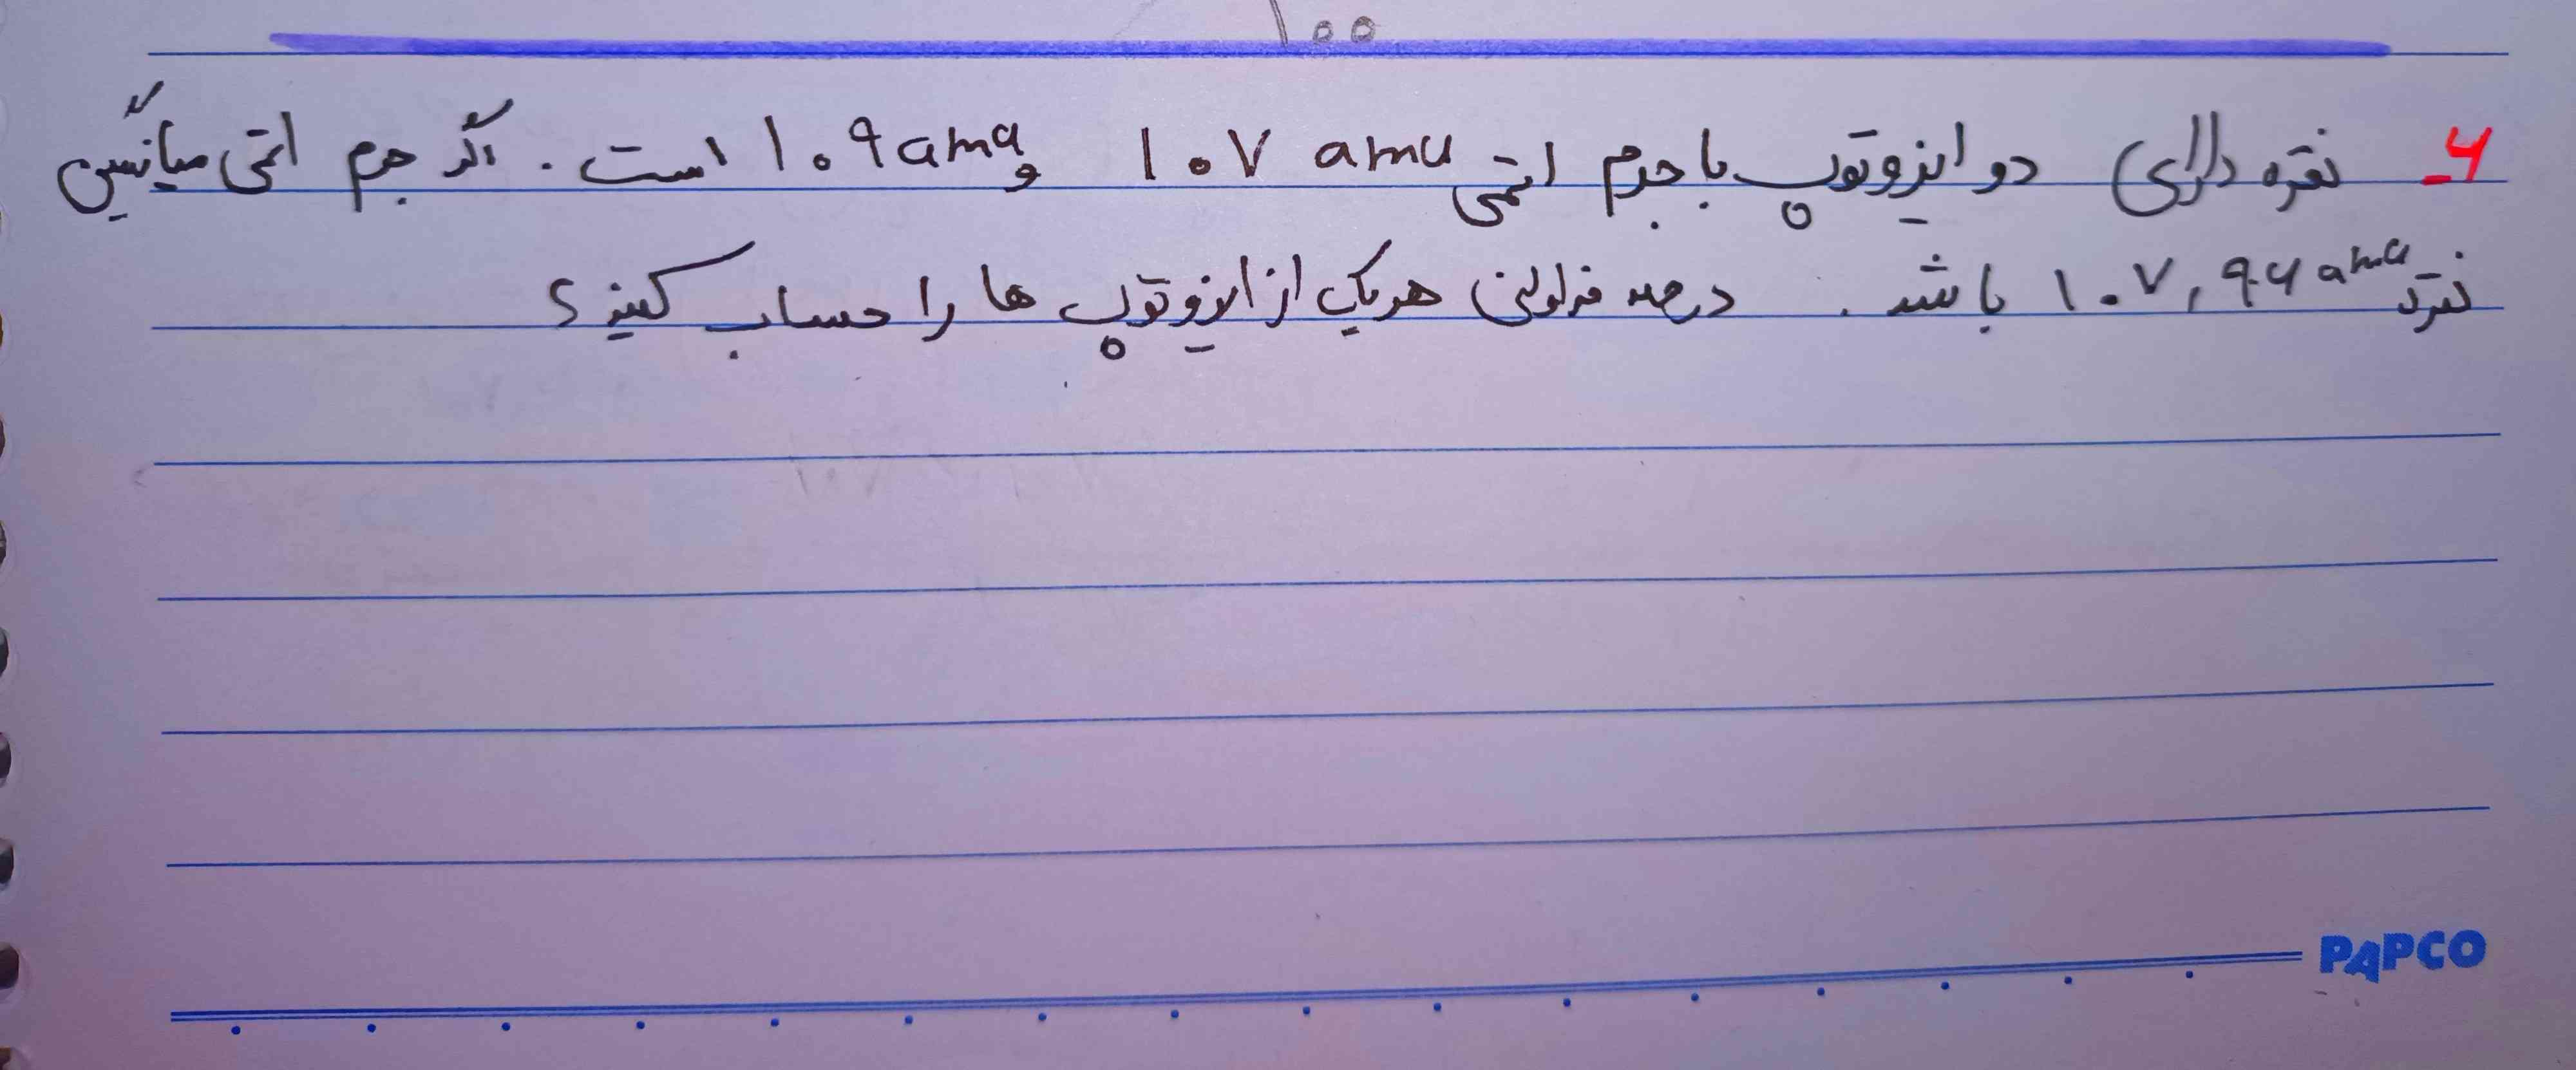 ۱۰۰
۶- نقره دارای دو ایزوتوپ با جرم اتمی ۱۰۷ amu و ۱۰۹ amu است. اگر جرم اتمی میانگین
نقره ۱۰۷,۹۶ amu باشد. درصد فراوانی هریک از ایزوتوپ ها را حساب کنید؟
PAPCO